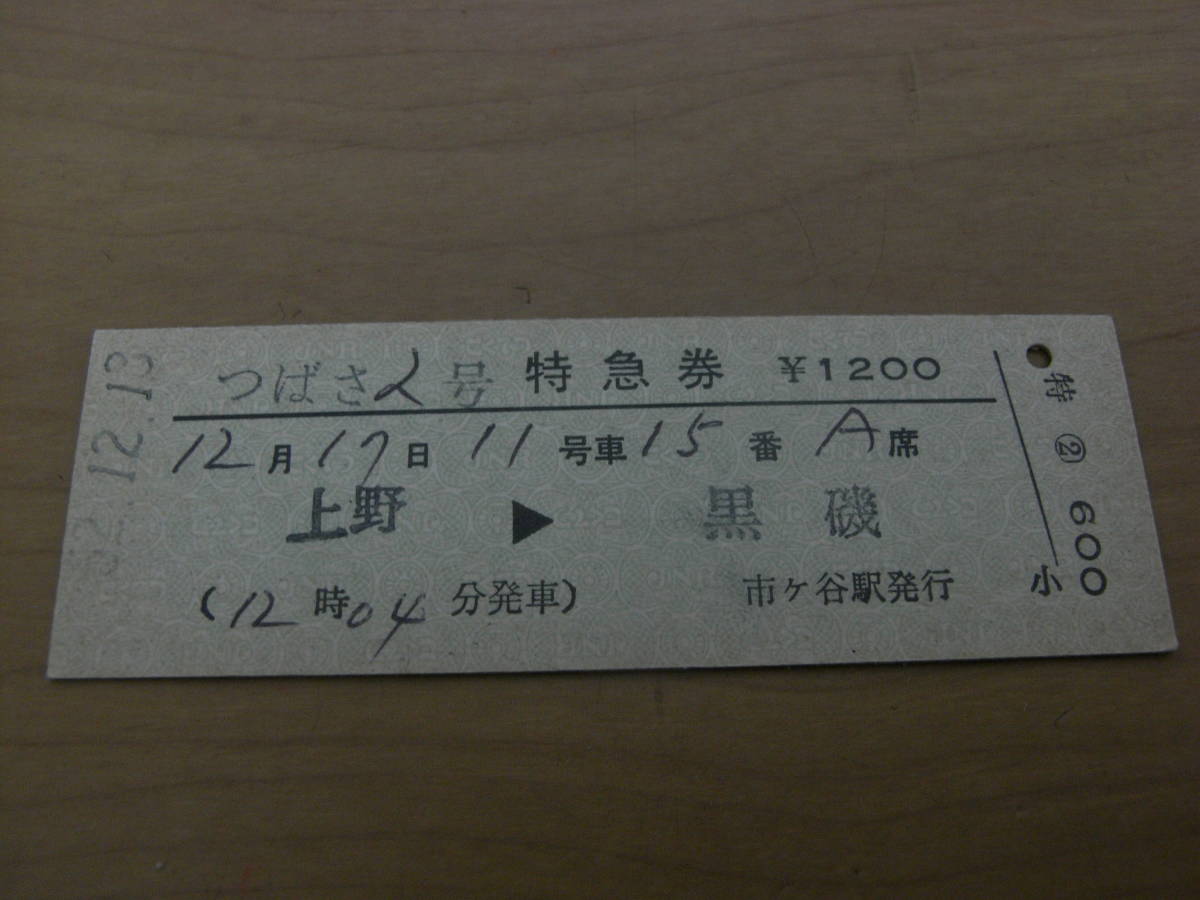 つばさ2号 特急券 ¥1200
12月17日 11号車15番 A席
上野 ▶ 黒磯
(12時04分発車) 市ヶ谷駅発行
52.12.13
特 ② 600
小